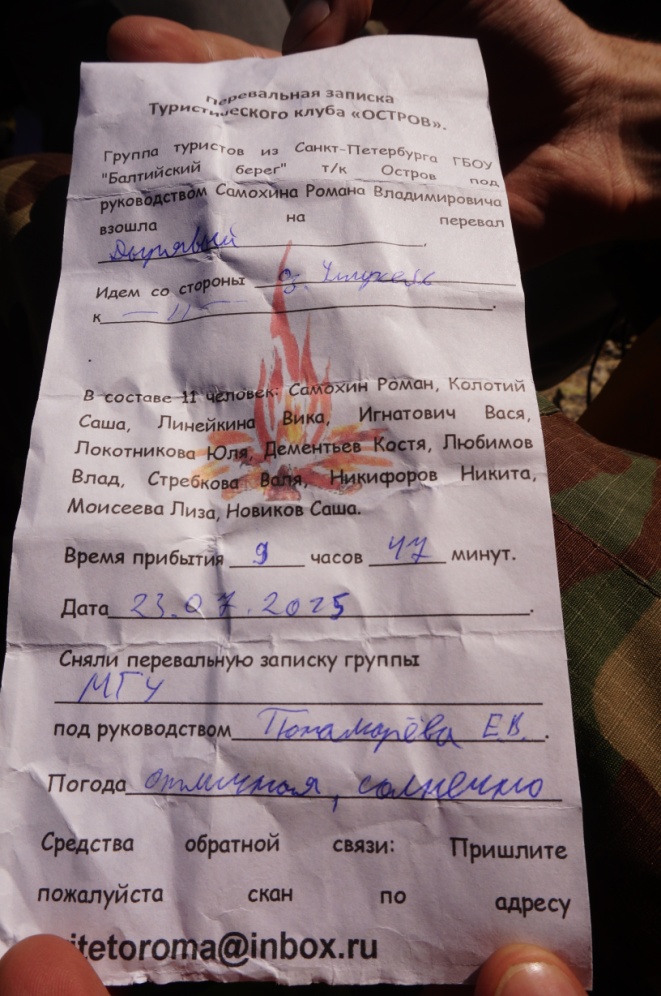 Перевальная записка
Туристического клуба «ОСТРОВ».
Группа туристов из Санкт-Петербурга ГБОУ
"Балтийский берег" т/к Остров под
руководством Самохина Романа Владимировича
взошла на перевал
Дырявый ,
Идем со стороны оз.
к — 11 — .
В составе 11 человек: Самохин Роман, Колотий
Саша, Линейкина Вика, Игнатович Вася,
Локотникова Юля, Дементьев Костя, Любимов
Влад, Стребкова Валя, Никифоров Никита,
Моисеева Лиза, Новиков Саша.
Время прибытия 9 часов 47 минут.
Дата 23.07.2025 .
Сняли перевальную записку группы
МГУ
под руководством Понаморёва Е.В. .
Погода отличная, солнечно
Средства обратной связи: Пришлите
пожалуйста скан по адресу
itetoroma@inbox.ru